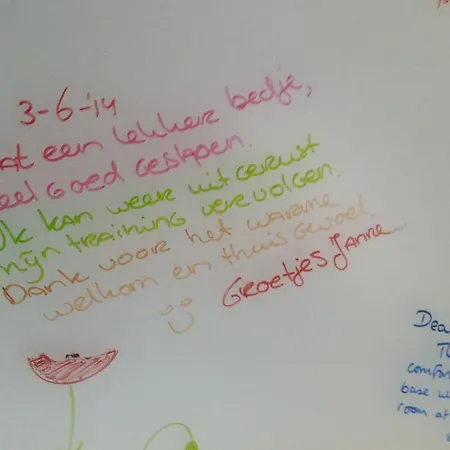 3-6-'14
at een lekker bedje,
eel goed geslapen.
Ik kan weer uitgerust
mijn training vervolgen.
Dank voor het warme
welkom en thuisgevoel
Groetjes Janna
Dea
comfor
base w
room at